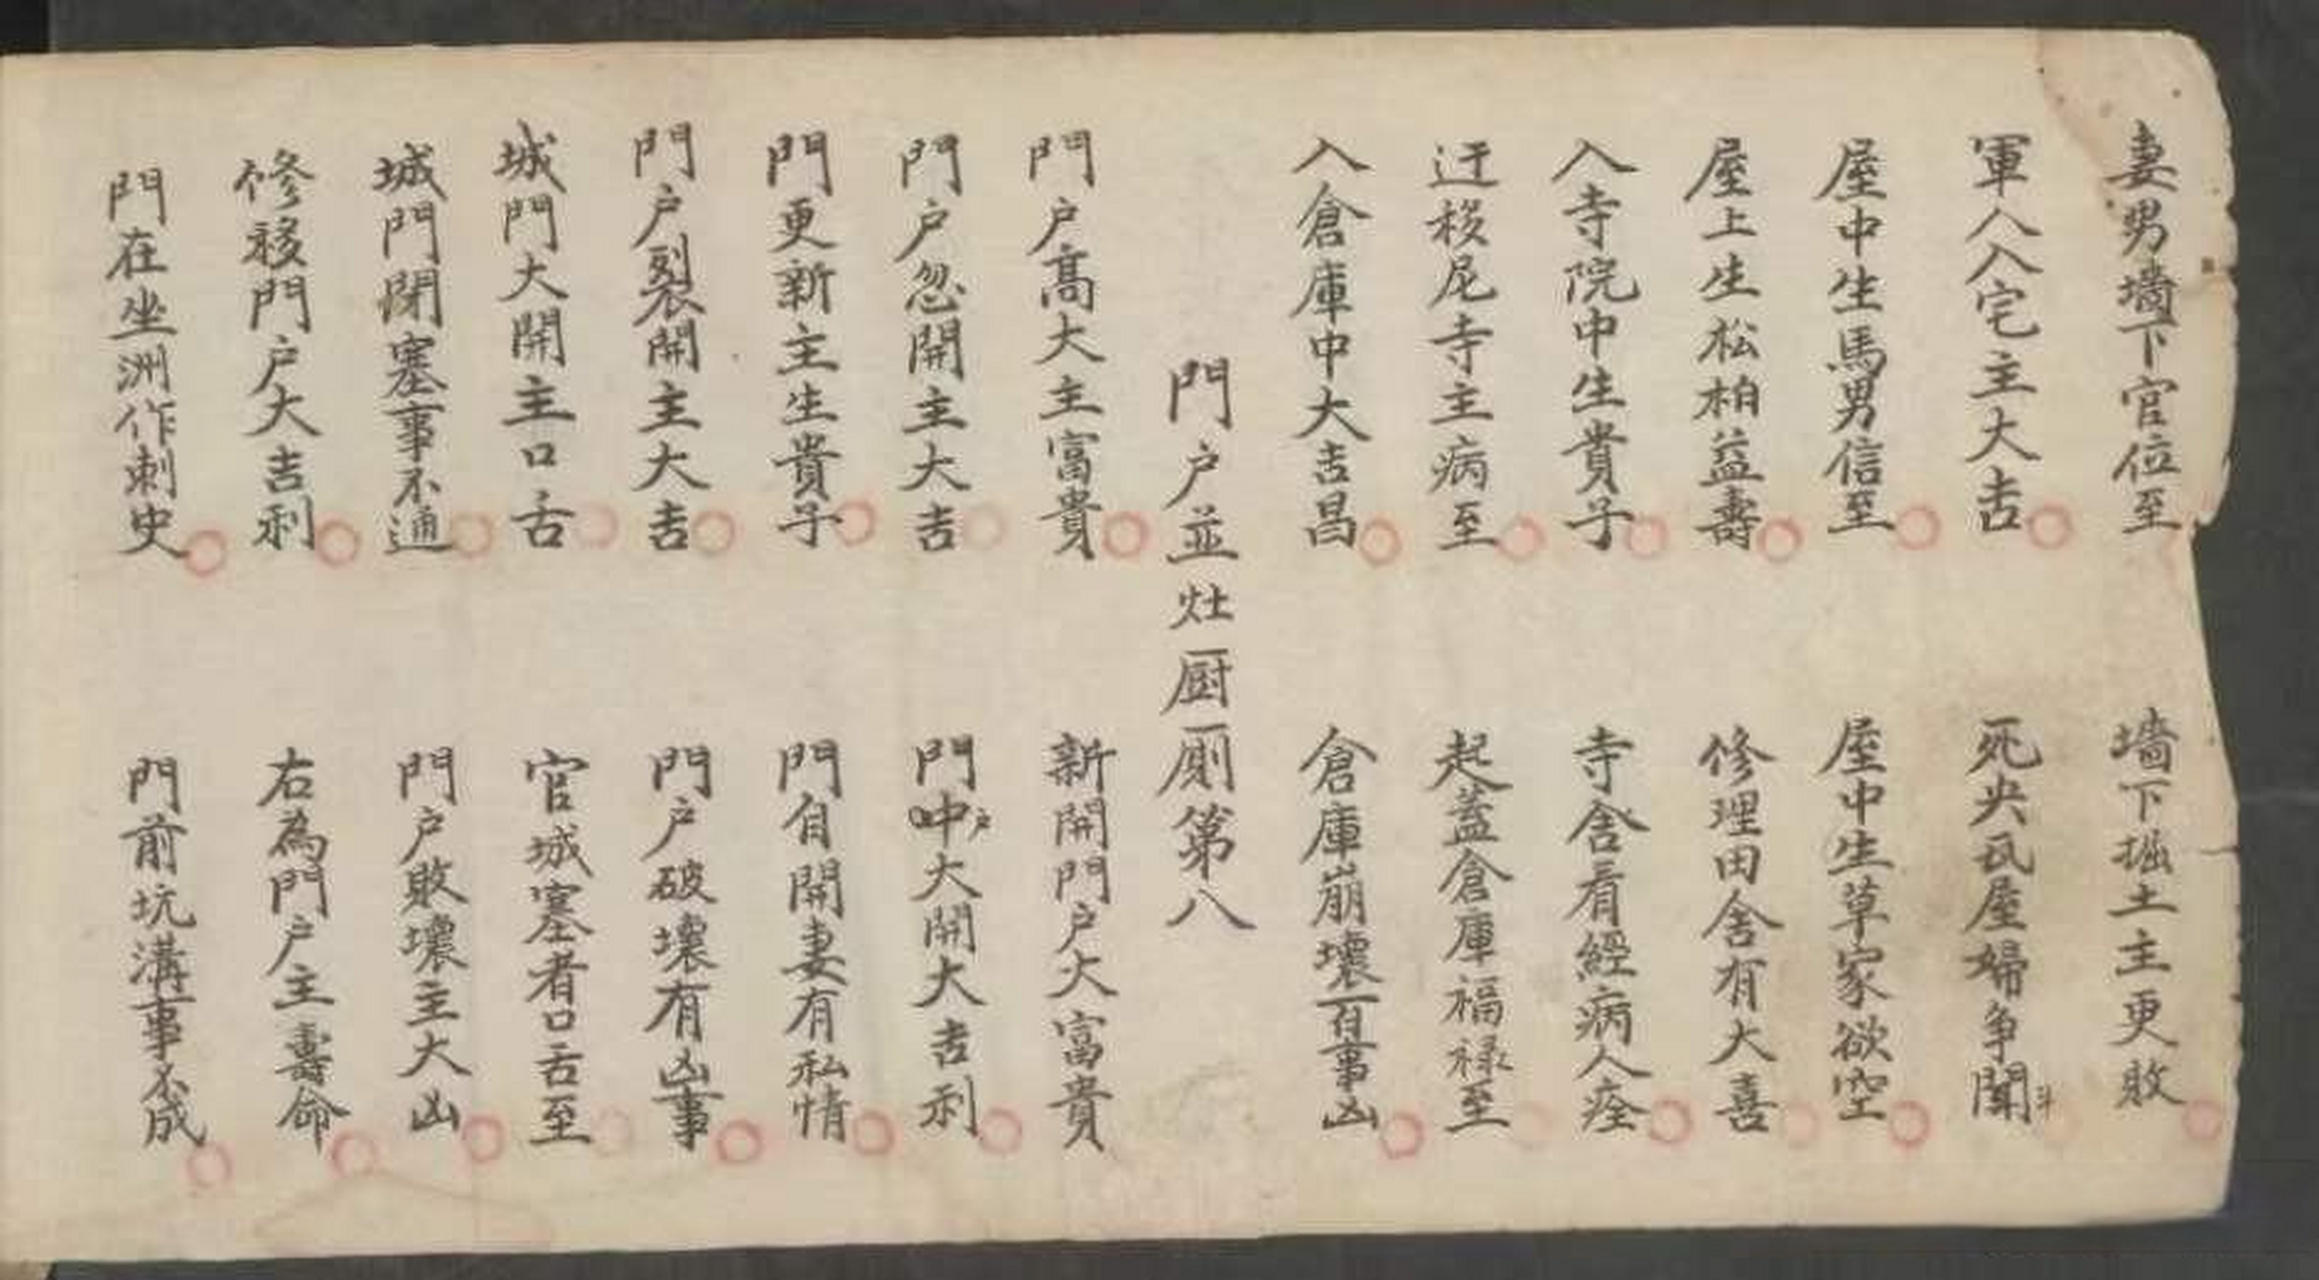 妻男墻下官位至　墻下掘土主更敗
軍人入宅主大吉　死央瓦屋婦争鬪
屋中生馬男信至　屋中生草家欲空
屋上生松柏益壽　修理田舍有大喜
入寺院中生貴子　寺舍看經病人痊
迁移尼寺主病至　起蓋倉庫福禄至
入倉庫中大吉昌　倉庫崩壞百事凶
門户並灶厨厠第八
門户高大主富貴　新開門户大富貴
門户忽開主大吉　門户中大開大吉利
門更新主生貴子　門自開妻有私情
門户裂開主大吉　門户破壞有凶事
城門大開主口舌　官城塞者口舌至
城門閉塞事不通　門户敗壞主大凶
修移門户大吉利　右為門户主壽命
門在坐洲作刺史　門前坑溝事不成